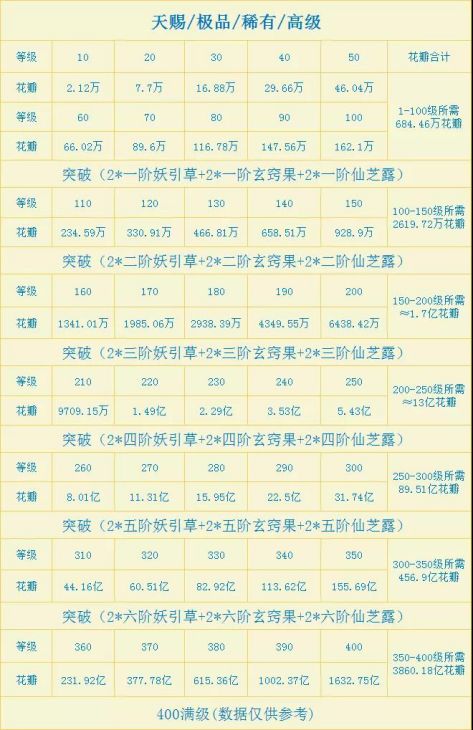 天赐/极品/稀有/高级
等级 10 20 30 40 50 花瓣合计
花瓣 2.12万 7.7万 16.88万 29.66万 46.04万
等级 60 70 80 90 100
花瓣 66.02万 89.6万 116.78万 147.56万 162.1万
1-100级所需
684.46万花瓣
突破（2*一阶妖引草+2*一阶玄窍果+2*一阶仙芝露）
等级 110 120 130 140 150
花瓣 234.59万 330.91万 466.81万 658.51万 928.9万
100-150级所需
2619.72万花瓣
突破（2*二阶妖引草+2*二阶玄窍果+2*二阶仙芝露）
等级 160 170 180 190 200
花瓣 1341.01万 1985.06万 2938.39万 4349.55万 6438.42万
150-200级所需
≈1.7亿花瓣
突破（2*三阶妖引草+2*三阶玄窍果+2*三阶仙芝露）
等级 210 220 230 240 250
花瓣 9709.15万 1.49亿 2.29亿 3.53亿 5.43亿
200-250级所需
≈13亿花瓣
突破（2*四阶妖引草+2*四阶玄窍果+2*四阶仙芝露）
等级 260 270 280 290 300
花瓣 8.01亿 11.31亿 15.95亿 22.5亿 31.74亿
250-300级所需
89.51亿花瓣
突破（2*五阶妖引草+2*五阶玄窍果+2*五阶仙芝露）
等级 310 320 330 340 350
花瓣 44.16亿 60.51亿 82.92亿 113.62亿 155.69亿
300-350级所需
456.9亿花瓣
突破（2*六阶妖引草+2*六阶玄窍果+2*六阶仙芝露）
等级 360 370 380 390 400
花瓣 231.92亿 377.78亿 615.36亿 1002.37亿 1632.75亿
350-400级所需
3860.18亿花瓣
400满级(数据仅供参考)